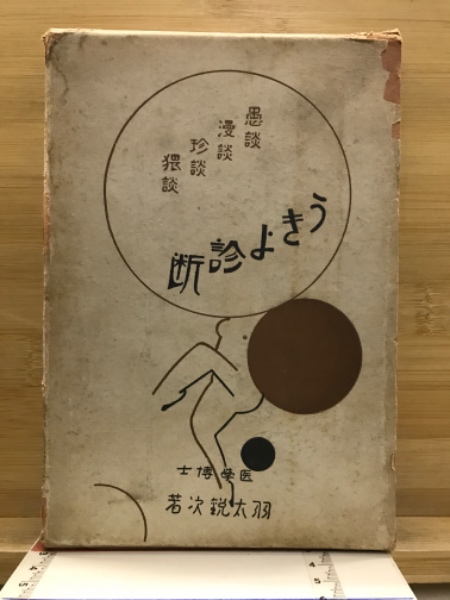 愚談
漫談
珍談
猥談
うきよ診断
医学博士
羽太鋭次著
5
4
4
5